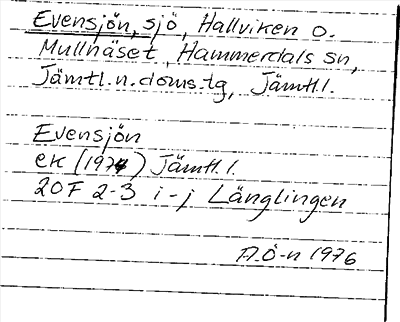 Evensjön, sjö, Hallviken o.
Mullnäset, Hammerdals sn,
Jämtl.n.doms.tg, Jämtl.l.
Evensjön
ek (1974) Jämtl.l.
20F 2-3 i-j Länglingen
A.Ö-n 1976